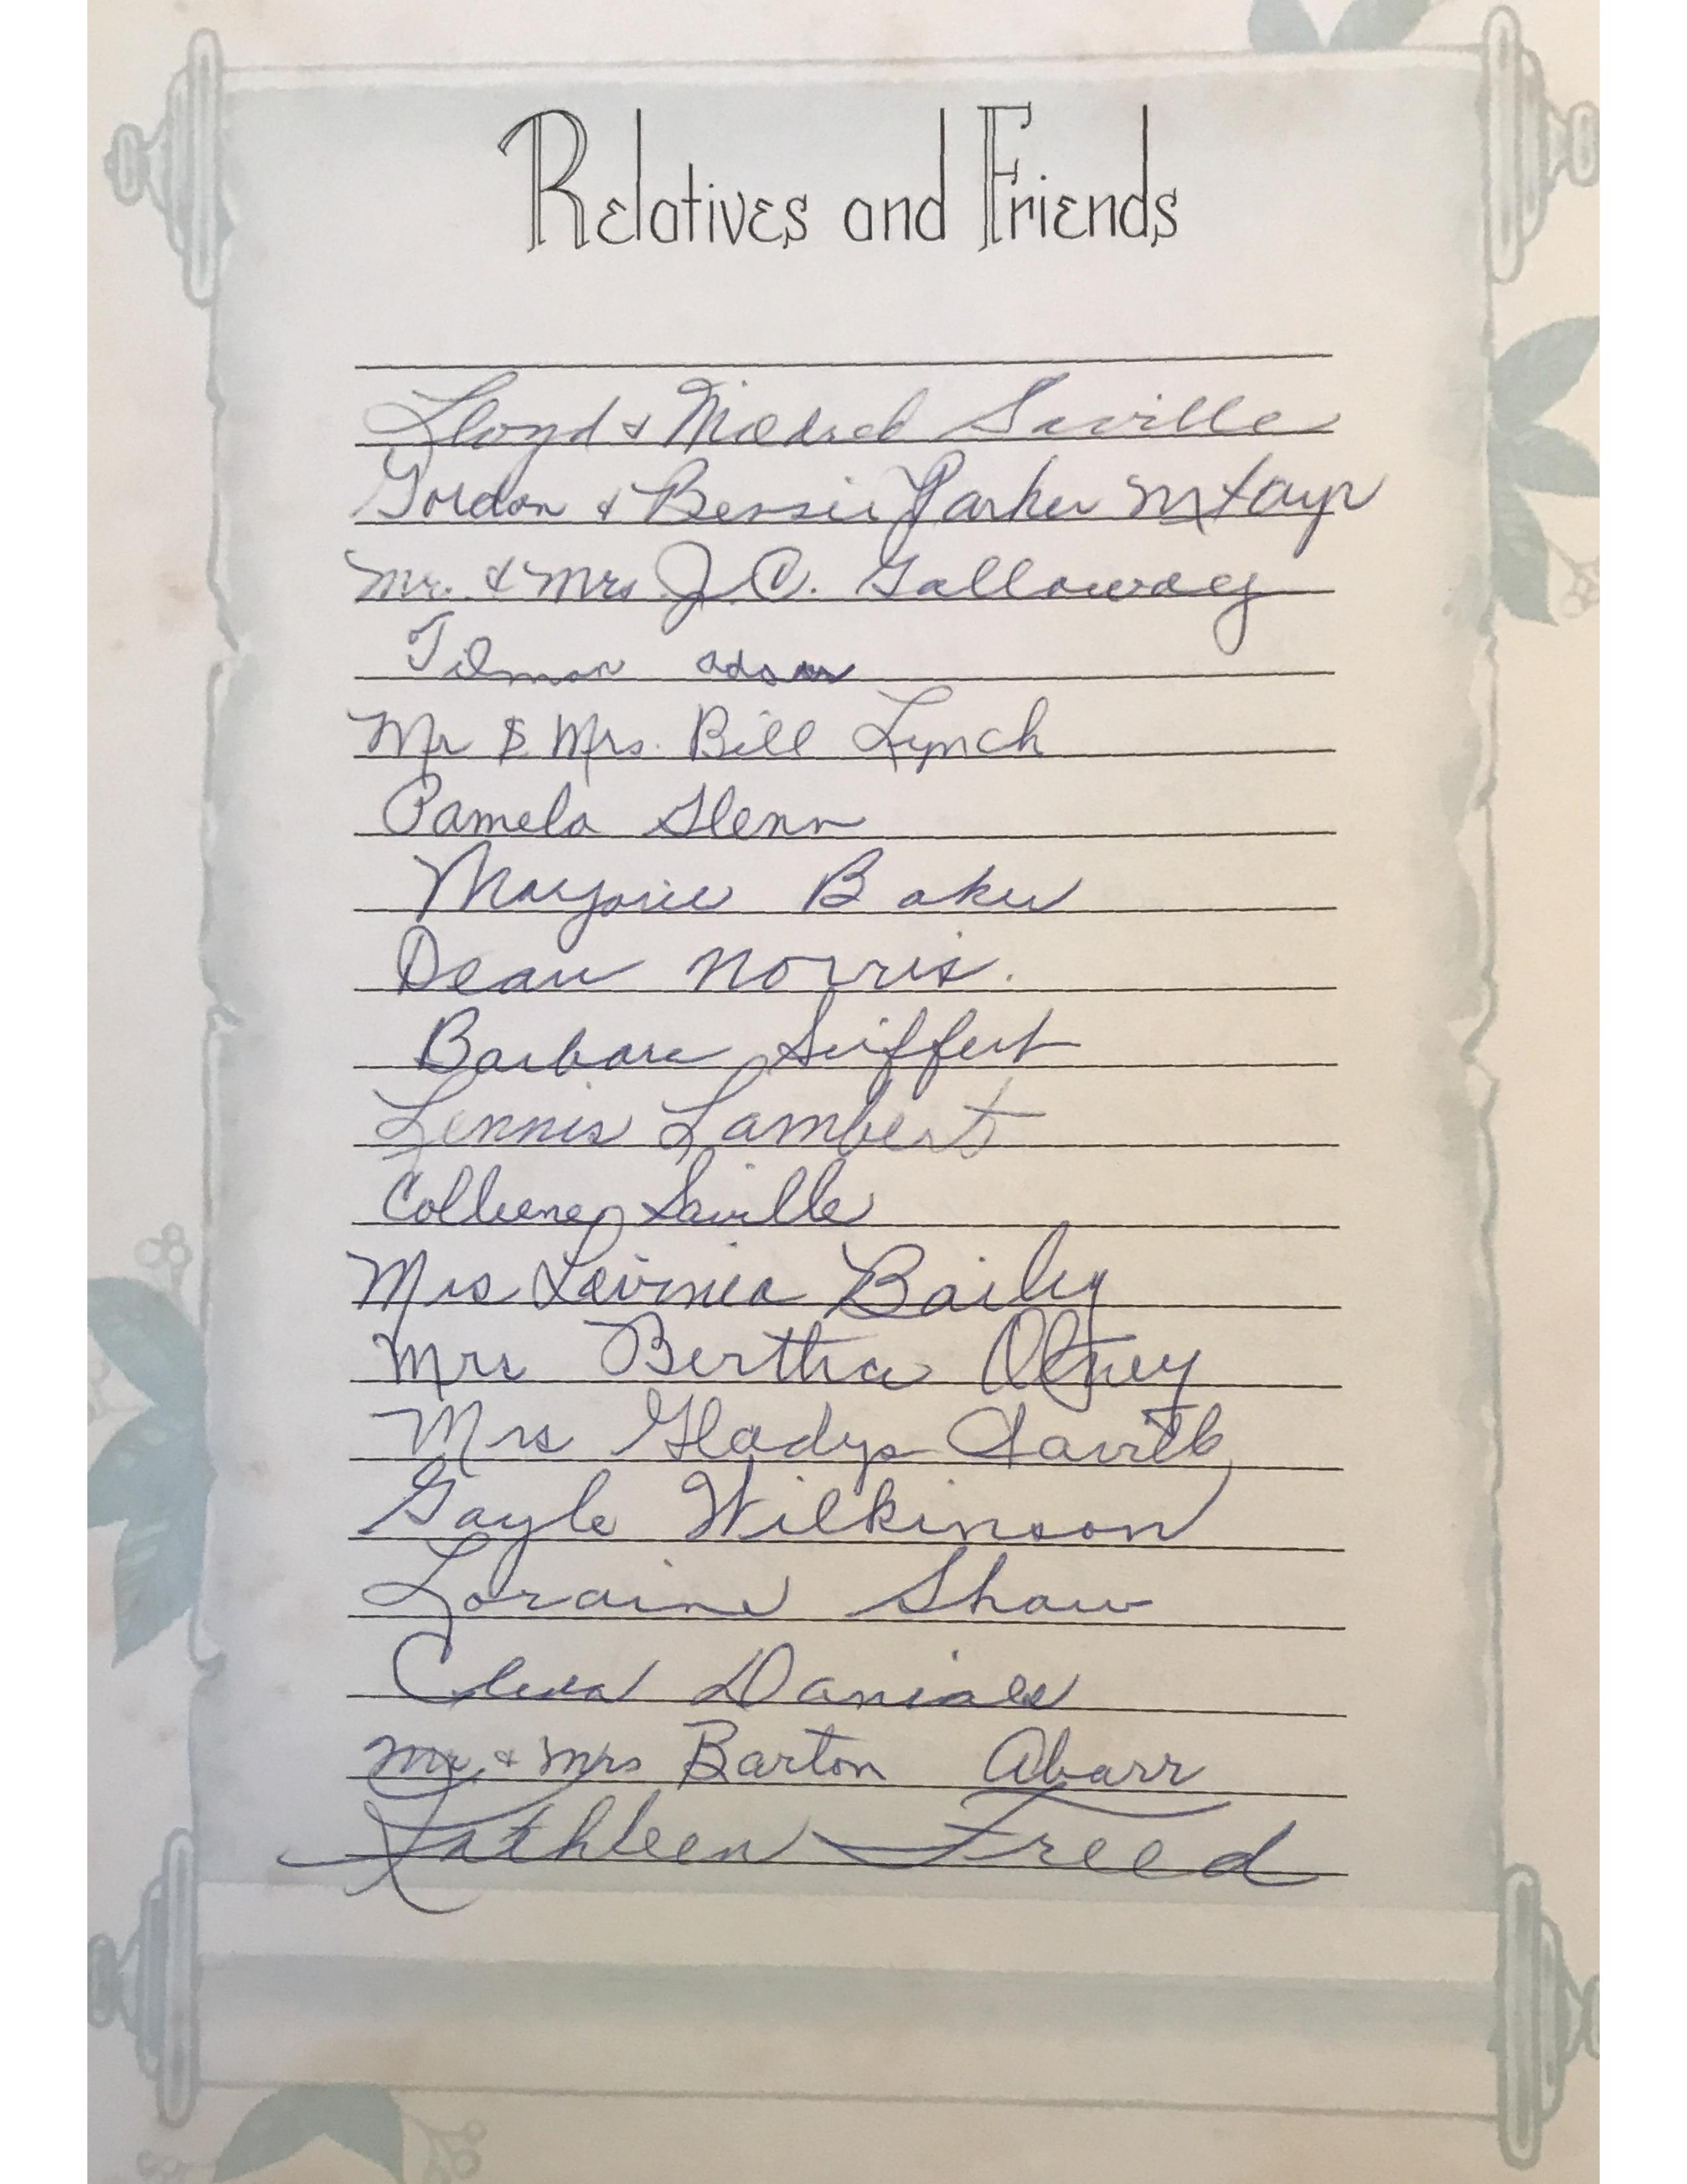 Relatives and Friends
Lloyd & Mildred Saville
Gordon & Bessie Parker Mt Ayr
Mr. & Mrs. J. C. Galloway
Tilman
Mr & Mrs. Bill Lynch
Pamela Glenn
Marjorie Baker
Dean Norris.
Barbara Seiffert
Lennis Lambert
Colleene Saville
Mrs Lavinia Baily
Mrs Bertha Olney
Mrs Gladys
Gayle Wilkinson
Loraine Shaw
Cleva Daniels
Mr & Mrs Barton Abarr
Kathleen Freed